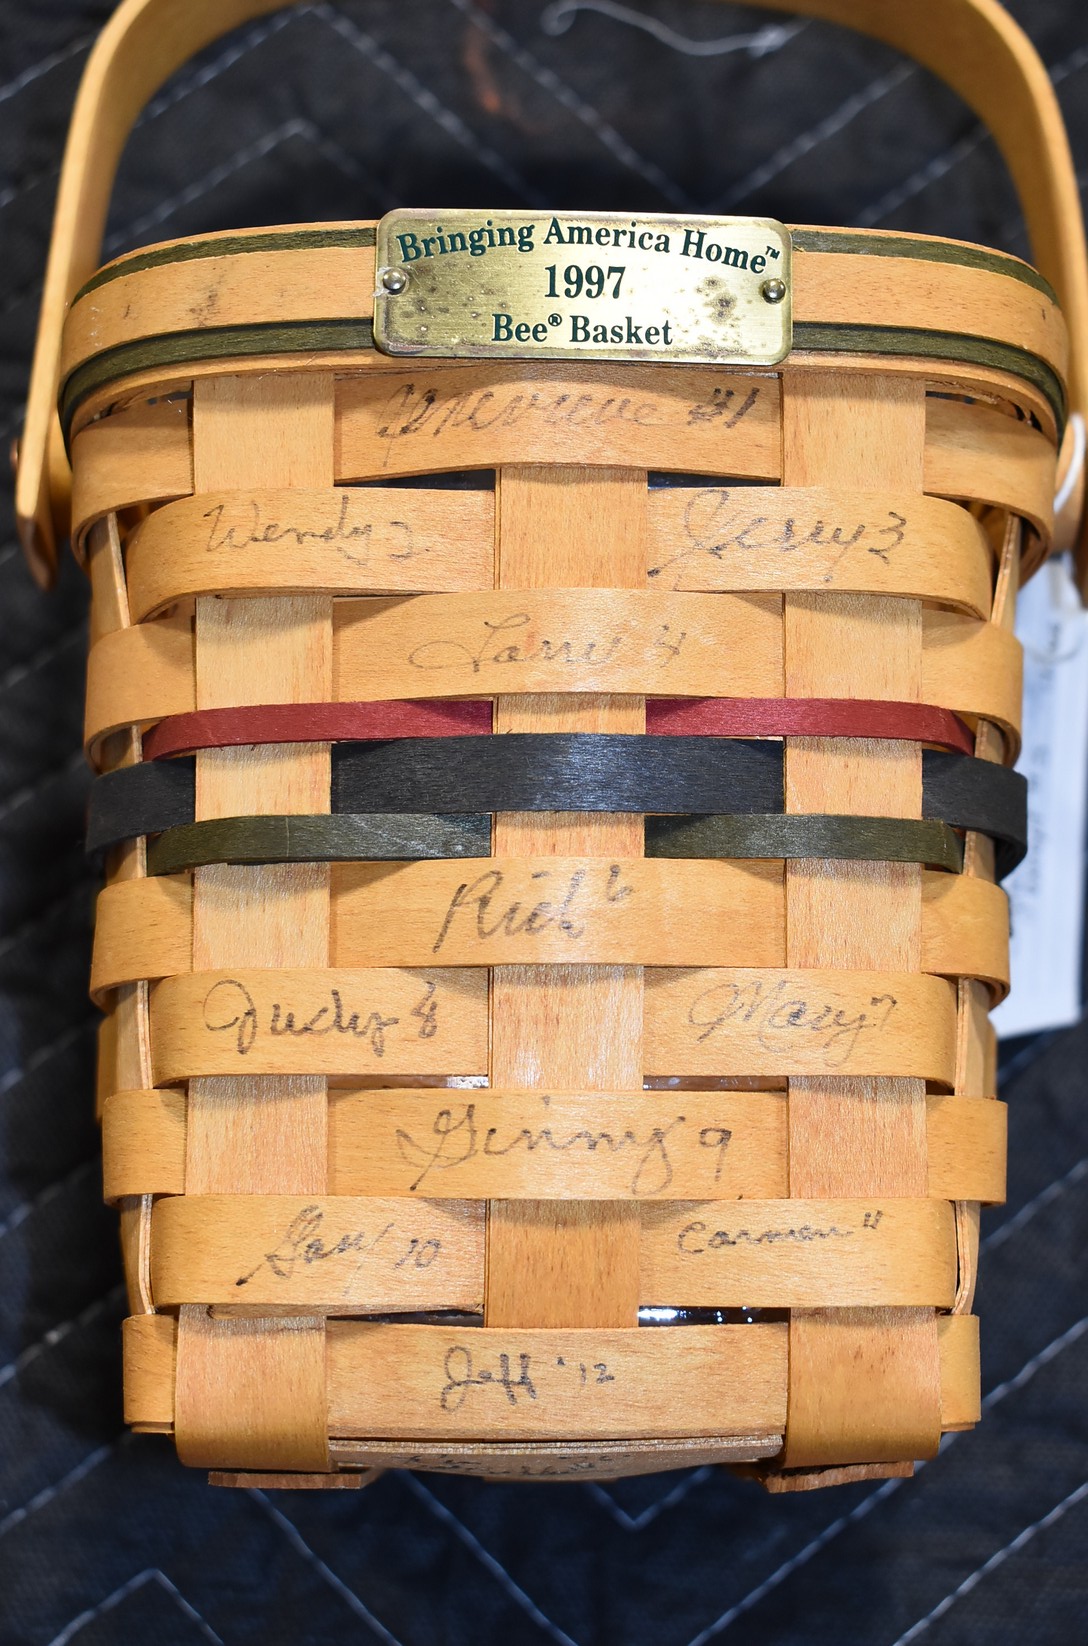 Bringing America Home™
1997
Bee® Basket
Genevieve #1
Wendy 2
Jerry 3
Larry 4
Rich 6
Judy 8
Mary 7
Ginny 9
Gary 10
Carmen 11
Jeff '12